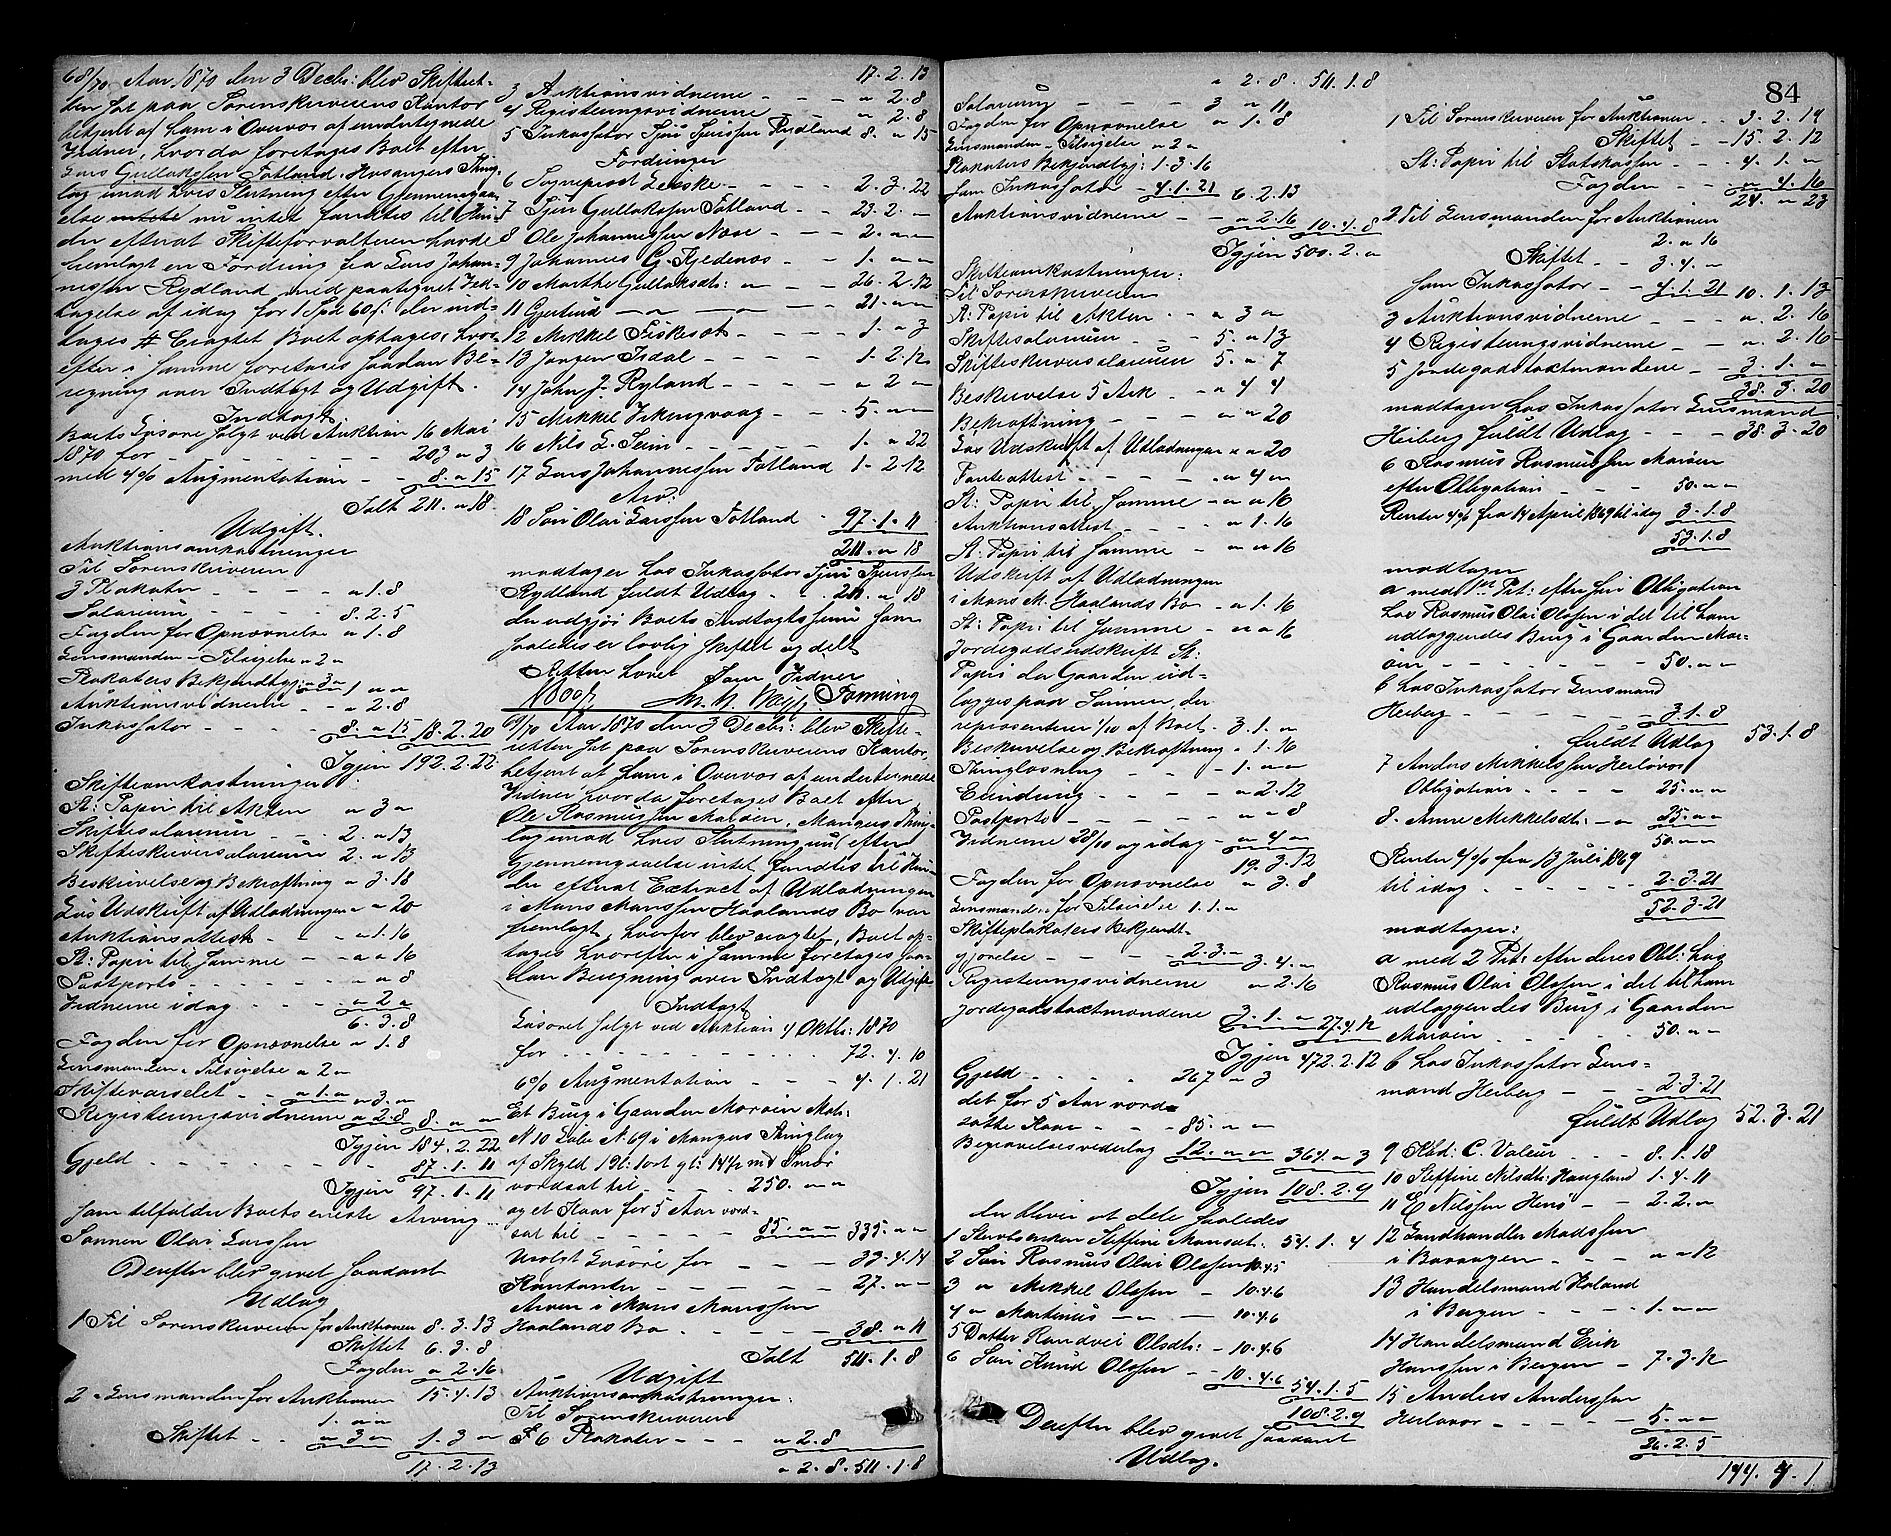 68/70 Aar 1870 den 3 Decbr: blev Skifteret-
ten sat paa Sorenskriverens Kontor
betjent af ham i Overvær af undertegnede
Vidner, hvorda foretages Boet efter
Lars Gullaksen Totland, Hosangers Thing-
lag imod hvis Slutning efter Gjennemgaa-
else nu intet fandtes til Hin-
der efterat Skifteforvalteren havde
fremlagt en Fordring fra Lars Johan-
nessen Rydland med paategnet Ved-
tagelse af idag for 1 Spd 60 s: der ind-
tages # Eragtet Boet optages, hvor-
efter i samme foretages saadan Be-
regning over Indtægt og Udgift.
Indtægt
Boets Løsøre solgt ved Auktion 16 Mai
1870 for - - - 203 " 3
med 4% Augmentation - - 8. " 15
Ialt 211. " 18
Udgift.
Auktionsomkostninger
Til Sorenskriveren
3 Plakater - - - " 1. 8
Salarium - - - 8. 2. 5
Fogden for Opnævnelse " 1. 8
Lensmanden - Tilsigelse " 2 "
Plakaters Bekjendtgj: " 3 " 1 " "
Auktionsvidnerne - - " 2. 8
Inkassator - - - 8. " 15 18. 2. 20
Igjen 192. 2. 22
Skifteomkostninger
St: Papir til Akten " 3 "
Skiftesalarium - - 2. " 13
Skifteskriversalarium 2. " 13
Beskrivelse og Bekræftning " 3. 18
Løs Udskrift af Udlodningen " " 20
Auktionsattest - - " 1. 16
St: Papir til samme - - " " 16
Postporto - - - " " 8
Vidnerne idag - - - " 2 "
6. 3. 8
Fogden for Opnævnelse " 1. 8
Lensmanden - Tilsigelse " 2 "
Skiftevarselet - - " 1. " " 3. "
Registreringsvidnerne " 2. 8 8. " "
Igjen 184. 2. 22
Gjeld - - - 87. 1. 11
Igjen 97. 1. 11
som tilfalder Boets eneste Arving
Sønnen Olai Larssen
Derefter blev givet saadant
Udlæg
1 Til Sorenskriveren for Auktionen 8. 3. 13
Skiftet 6. 3. 8
Fogden " 2. 16
2 - Lensmanden for Auktionen 15. 4. 13
1. " "
Skiftet - - " 3 " 1. 3 "
17. 2. 13
17. 2. 13
3 Auktionsvidnerne - - - " 2. 8
4 Registreringsvidnerne - - " 2. 8
5 Inkassator Sjur Sjurssen Rydland 8. " 15
Fordringer
6 Sogneprest Lerske - - - 2. 3. 22
7 Sjur Gullaksen Totland - - 23. 2. "
8 Ole Johannessen Næse - - - 2. " "
9 Johannes G. Kjedenæs - - 1. " "
10 Marthe Gullaksdtr: " - 26. 2. 12
11 Gjertrud - " - - " - 21. " "
12 Mikkel Fiskeset - - - 1. " 3
13 Jørgen Isdal - - - 1. 2. 12
14 John J. Ryland - - - " 2 "
15 Mikkel Vikingvaag - - - 5. " "
16 Nils L. Seim - - - 1. " 22
17 Lars Johannessen Totland 1. 2. 12
Arv:
18 Søn Olai Larssen Totland - 97. 1. 11
211. " 18
modtager hos Inkassator Sjur Sjurssen
Rydland fuldt Udlæg - - 211. " 18
der udgjør Boets Indtægtssum som
saaledes er lovlig skiftet og delt
Retten hævet Som Vidner
69/70 Aar 1870 den 3 Decbr: blev Skifte-
retten sat paa Sorenskriverens Kontor,
betjent af ham i Overvær af undertegnede
Vidner hvorda foretages Boet efter
Ole Rasmussen Marøen, Mangers Thing-
lag imod hvis Slutning nu efter
Gjennemgaaelse intet fandtes til Hin-
der efterat Extract af Udlodningen
i Mons Monssen Haalands Bo var
fremlagt, hvorfor blev eragtet, Boet op-
tages hvorefter i samme foretages saa-
dan Beregning over Indtægt og Udgift
Indtægt
Løsøret solgt ved Auktion 4 Oktbr: 1870
for - - - 72. 4. 10
6% Augmentation - - - 4. 1. 21
Et Brug i Gaarden Marøen Matr:
N 10 Løbe N. 69 i Mangers Thinglag
af Skyld
vordsat til - - - 250. " "
og et Kaar for 5 Aar vord-
sat til - - - 85. " " 335. " "
Usolgt Løsøre for - - - 33. 4. 14
Kontanter - - - 27. " "
Arven i Mons Monssen
Haalands Bo - - - 38. " 11
Ialt 511. 1. 8
Udgift
Auktionsomkostninger:
Til Sorenskriveren
F 6 Plakater - - - " 2. 8
" 2. 8. 511. 1. 8
84
" 2. 8. 511. 1. 8
Salarium - - - 3 " 11
Fogden for Opnævnelse " 1. 8
Lensmanden - Tilsigelse " 2 "
Plakaters Bekjendtgj: 1. 3. 16
som Inkassator - 4. 1. 21 6. 2. 13
Auktionsvidnerne - - " 2. 16 10. 4. 8
Igjen 500. 2. "
Skifteomkostninger:
Til Sorenskriveren
St: Papir til Akten - - " 3 "
Skiftesalarium - - 5. " 13
Skifteskriversalarium 5. " 7
Beskrivelse 5 Ark - " 4 4
Bekræftning - - - " " 20
Løs Udskrift af Udlodningen " " 20
Panteattest - - - " 4 "
St: Papir til samme - " " 16
Auktionsattest - - - " 1. 16
St: Papir til samme - " " 16
Udskrift af Udlodningen
i Mons M. Haalands Bo - " 1. 16
St: Papir til samme - " " 16
Jordegodsudskrift St:
Papir der Gaarden ud-
lægges paa Sønnen, der
repræsenterer 1/10 af Boet - 3. 1. "
Beskrivelse og Bekræftning " 1. 16
Thinglæsning - - - 1. " "
Erindring - - - " 2. 12
Postporto - - - " " 8
Vidnerne 28/10 og idag - " 4 "
19. 3. 12
Fogden for Opnævnelse " 3. 8
Lensmanden for Tilsigelse 1. 1. "
Skifteplakaters Bekjendt-
gjørelse - - - 2. 3. " 3. 4. "
Registreringsvidnerne " 2. 16
Jordegodstaxtmændene
3. 1. " 27. 4. 12
Igjen 472. 2. 12
Gjeld - - - 267 " 3
det for 5 Aar vord-
satte Kaar - - - 85. " "
Begravelsesvederlag 12. " " 364. " 3
Igjen 108. 2. 9
der bliver at dele saaledes
1 Stervboenken Steffine Monsdtr: 54. 1. 4
2 Søn Rasmus Olai Olssen 10. 4. 5
3 " Mikkel Olssen - 10. 4. 6
4 " Martinus - " - 10. 4. 6
5 Datter Randvei Olsdtr: - 10. 4. 6
6 Søn Knud Olssen - 10. 4. 6
54. 1. 5
108. 2. 9
Derefter blev givet saadant
Udlæg.
1 Til Sorenskriveren for Auktionen - - 3. 2. 19
Skiftet - - 15. 2. 12
St: Papir til Statskassen - - 4. 1. "
Fogden - - " 4. 16
24. " 23
2 Til Lensmanden for Auktionen
2. " 16
Skiftet - - 3. 4. "
som Inkassator - - 4. 1. 21 10. 1. 13
3 Auktionsvidnerne - - - " 2. 16
4 Registreringsvidnerne - - " 2. 16
5 Jordegodstaxtmændene - - 3. 1. "
38. 3. 20
modtager hos Inkassator Lensmand
Heiberg fuldt Udlæg - - - 38. 3. 20
6 Rasmus Rasmussen Marøen
efter Obligation - - - 50. " "
Renter 4% fra 14 April 1869 til idag 3. 1. 8
53. 1. 8
modtager
a med 1ste Prt: efter sin Obligation
hos Rasmus Olai Olssen i det til ham
udlæggendes Brug i Gaarden Mar-
øen - - - 50. " "
b hos Inkassator Lensmand
Heiberg - - - 3. 1. 8
fuldt Udlæg 53. 1. 8
7 Anders Mikkelssen Herløvær
Obligation - - - 25. " "
8. Anne Mikkelsdtr: - " 25. " "
50. " "
Renter 4% fra 13 Juli 1869
til idag - - - 2. 3. 21
52. 3. 21
modtager:
a med 2 Prt: efter deres Obl: hos
Rasmus Olai Olssen i det til ham
udlæggendes Brug i Gaarden
Marøen - - - 50. " "
b hos Inkassator Lens-
mand Heiberg - - 2. 3. 21
fuldt Udlæg 52. 3. 21
9 Kbd: C. Valeur - - - 8. 1. 18
10 Steffine Nilsdtr: Haugland 1. 4. 11
11 E Nilssen Herø - 2. 2. "
12 Landhandler Madssen
i Bøvaagen - - " " 12
13 Handelsmand Haland
i Bergen - - - 1. " "
14 Handelsmand Erik
Hanssen i Bergen - 7. 3. 12
15 Anders Anderssen
Herløvær - - - 5. " "
26. 2. 5
144. 4. 1